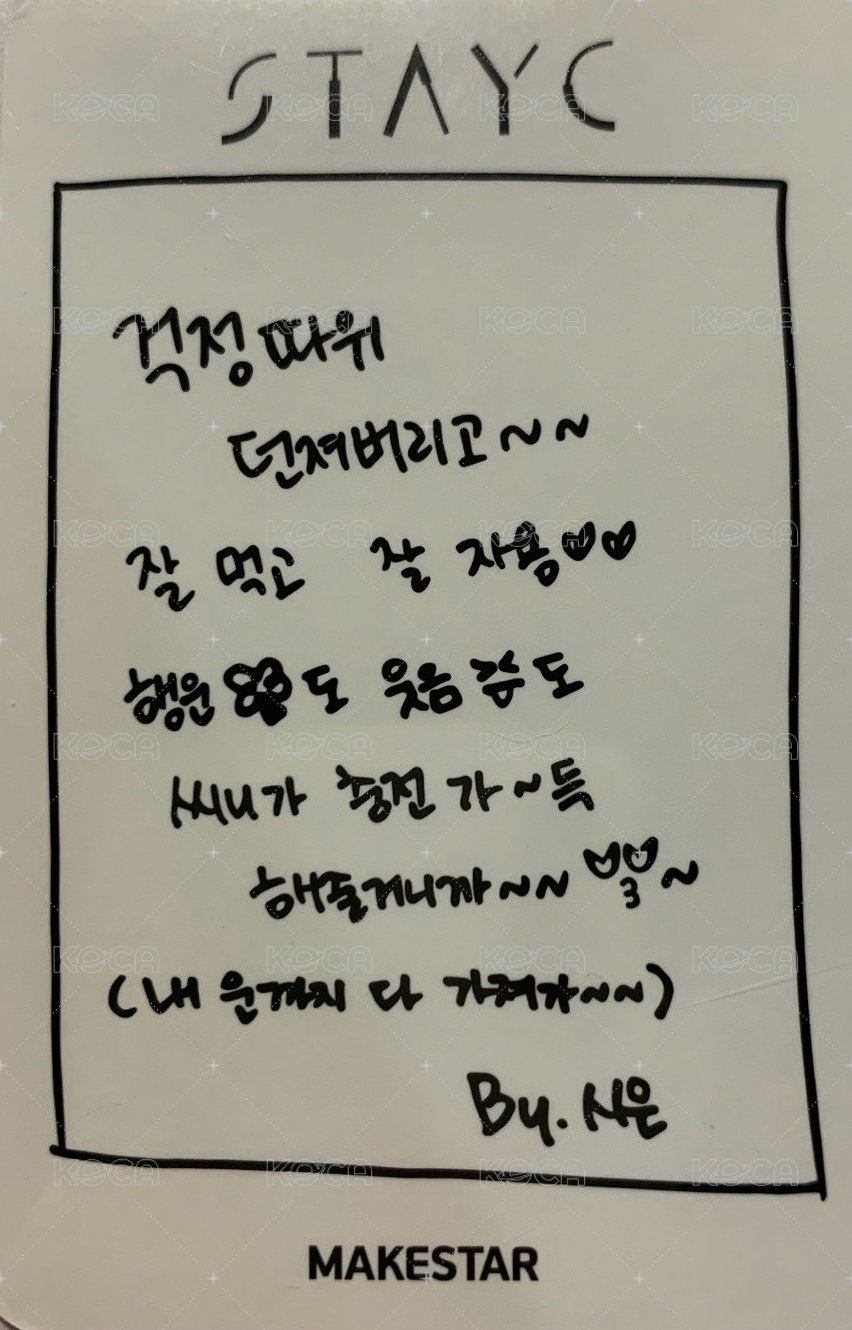 STAYC
걱정 따위
던져버리고~~
잘 먹고 잘 자용♡♡
행운🍀도 웃음 도
씨니가 충전 가~득
해줄거니까~~ ♡3♡~
(내 운까지 다 가져가~~)
By. 시은
MAKESTAR
KOCA